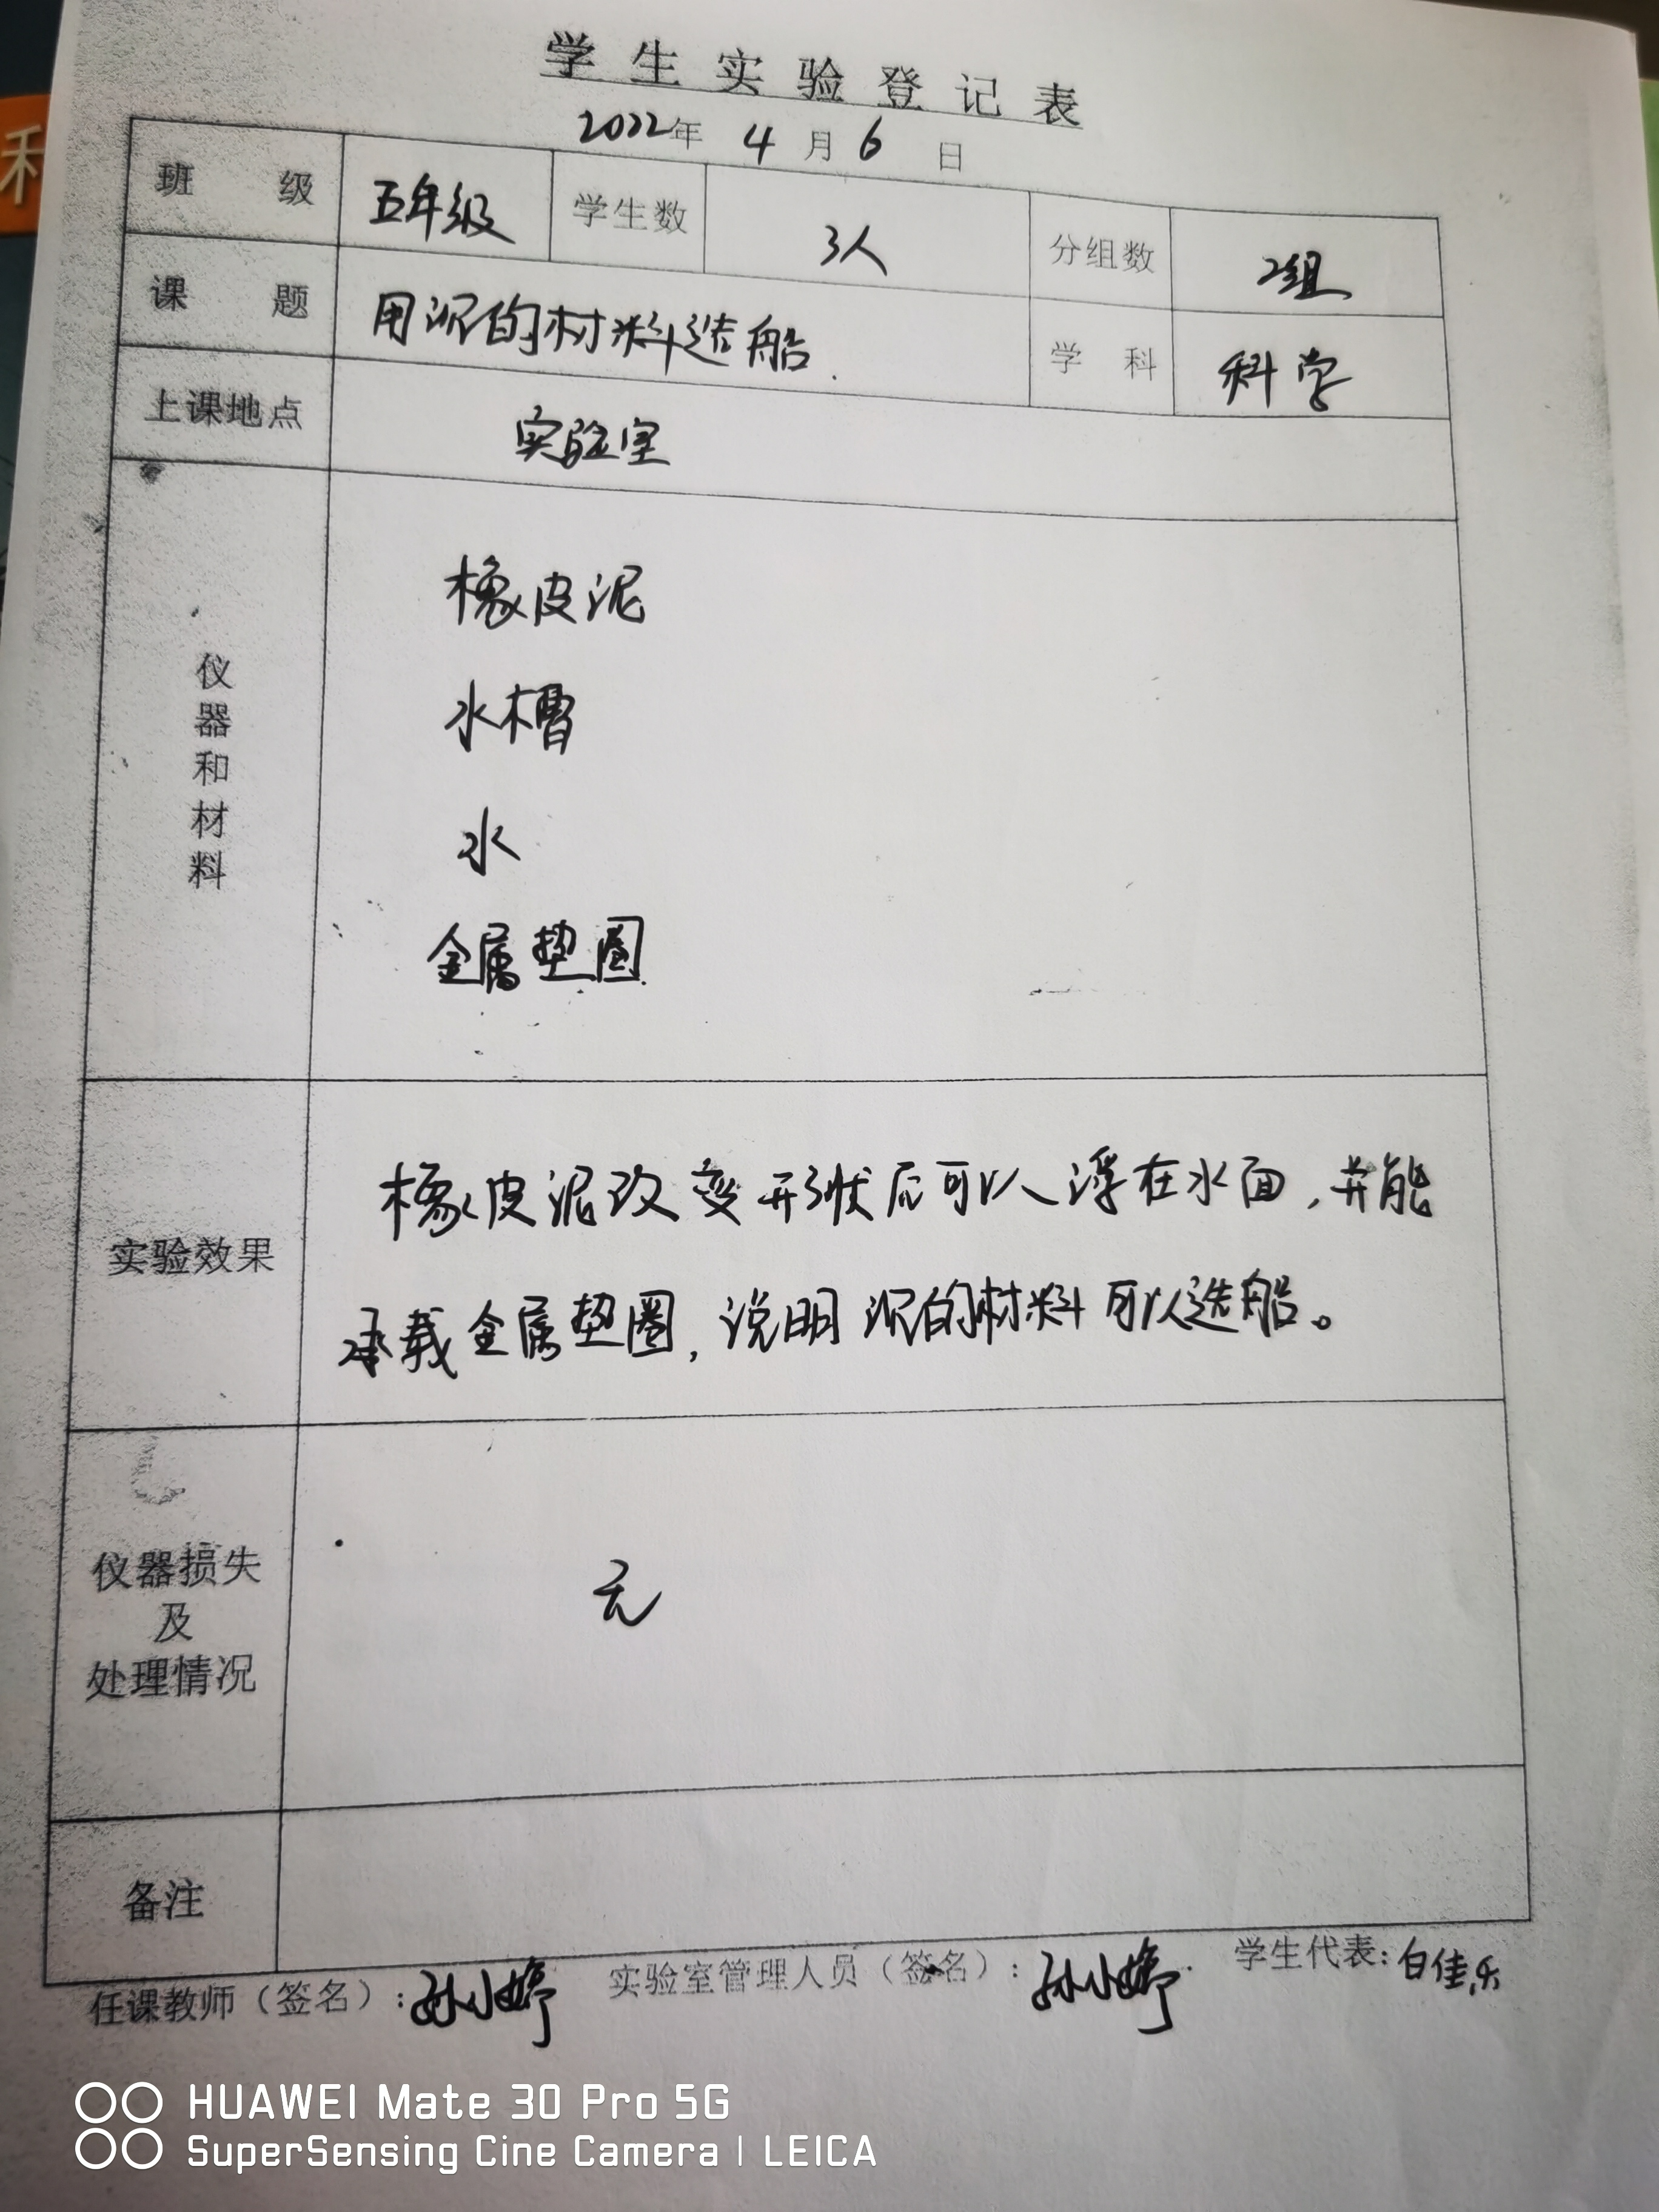 学生实验登记表
2022年 4月6日
班级 五年级 学生数 3人 分组数 2组
课题 用沉的材料造船. 学科 科学
上课地点 实验室
仪器和材料
橡皮泥
水槽
水
金属垫圈.
实验效果
橡皮泥改变形状后可以浮在水面,并能
承载金属垫圈,说明沉的材料可以造船。
仪器损失
及
处理情况
无
备注
任课教师(签名):孙小婷 实验室管理人员(签名):孙小婷. 学生代表:白佳乐
HUAWEI Mate 30 Pro 5G
SuperSensing Cine Camera | LEICA